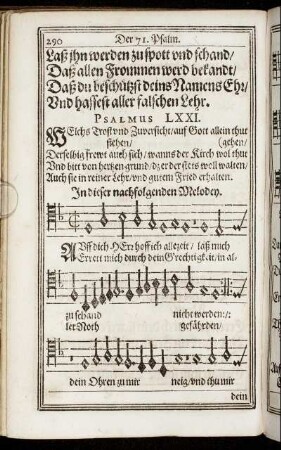 290 Der 71. Psalm.
Laß jhn werden zu spott vnd schand/
Daß allen Frommen werd bekandt/
Daß du beschützst deins Namens Ehr/
Vnd hassest aller falschen Lehr.
PSALMUS LXXI.
WElchs Trost vnd Zuversicht/ auff Gott allein thut
stehen/ (gehen/
Derselbig frewt auch sich/ wanns der Kirch wol thut
Vnd bitt von hertzen grund/ dz er der stets woll walten/
Auch sie in reiner Lehr vnd gutem Fried erhalten.
In dieser nachfolgenden Melodey.
AUff dich HErr hoff ich allezeit/ laß mich
Errett mich durch dein Grechtigkeit/ in al-
zu schand nicht werden:/:
ler Noth gefährden/
dein Ohren zu mir neig/ vnd thu mir
dein